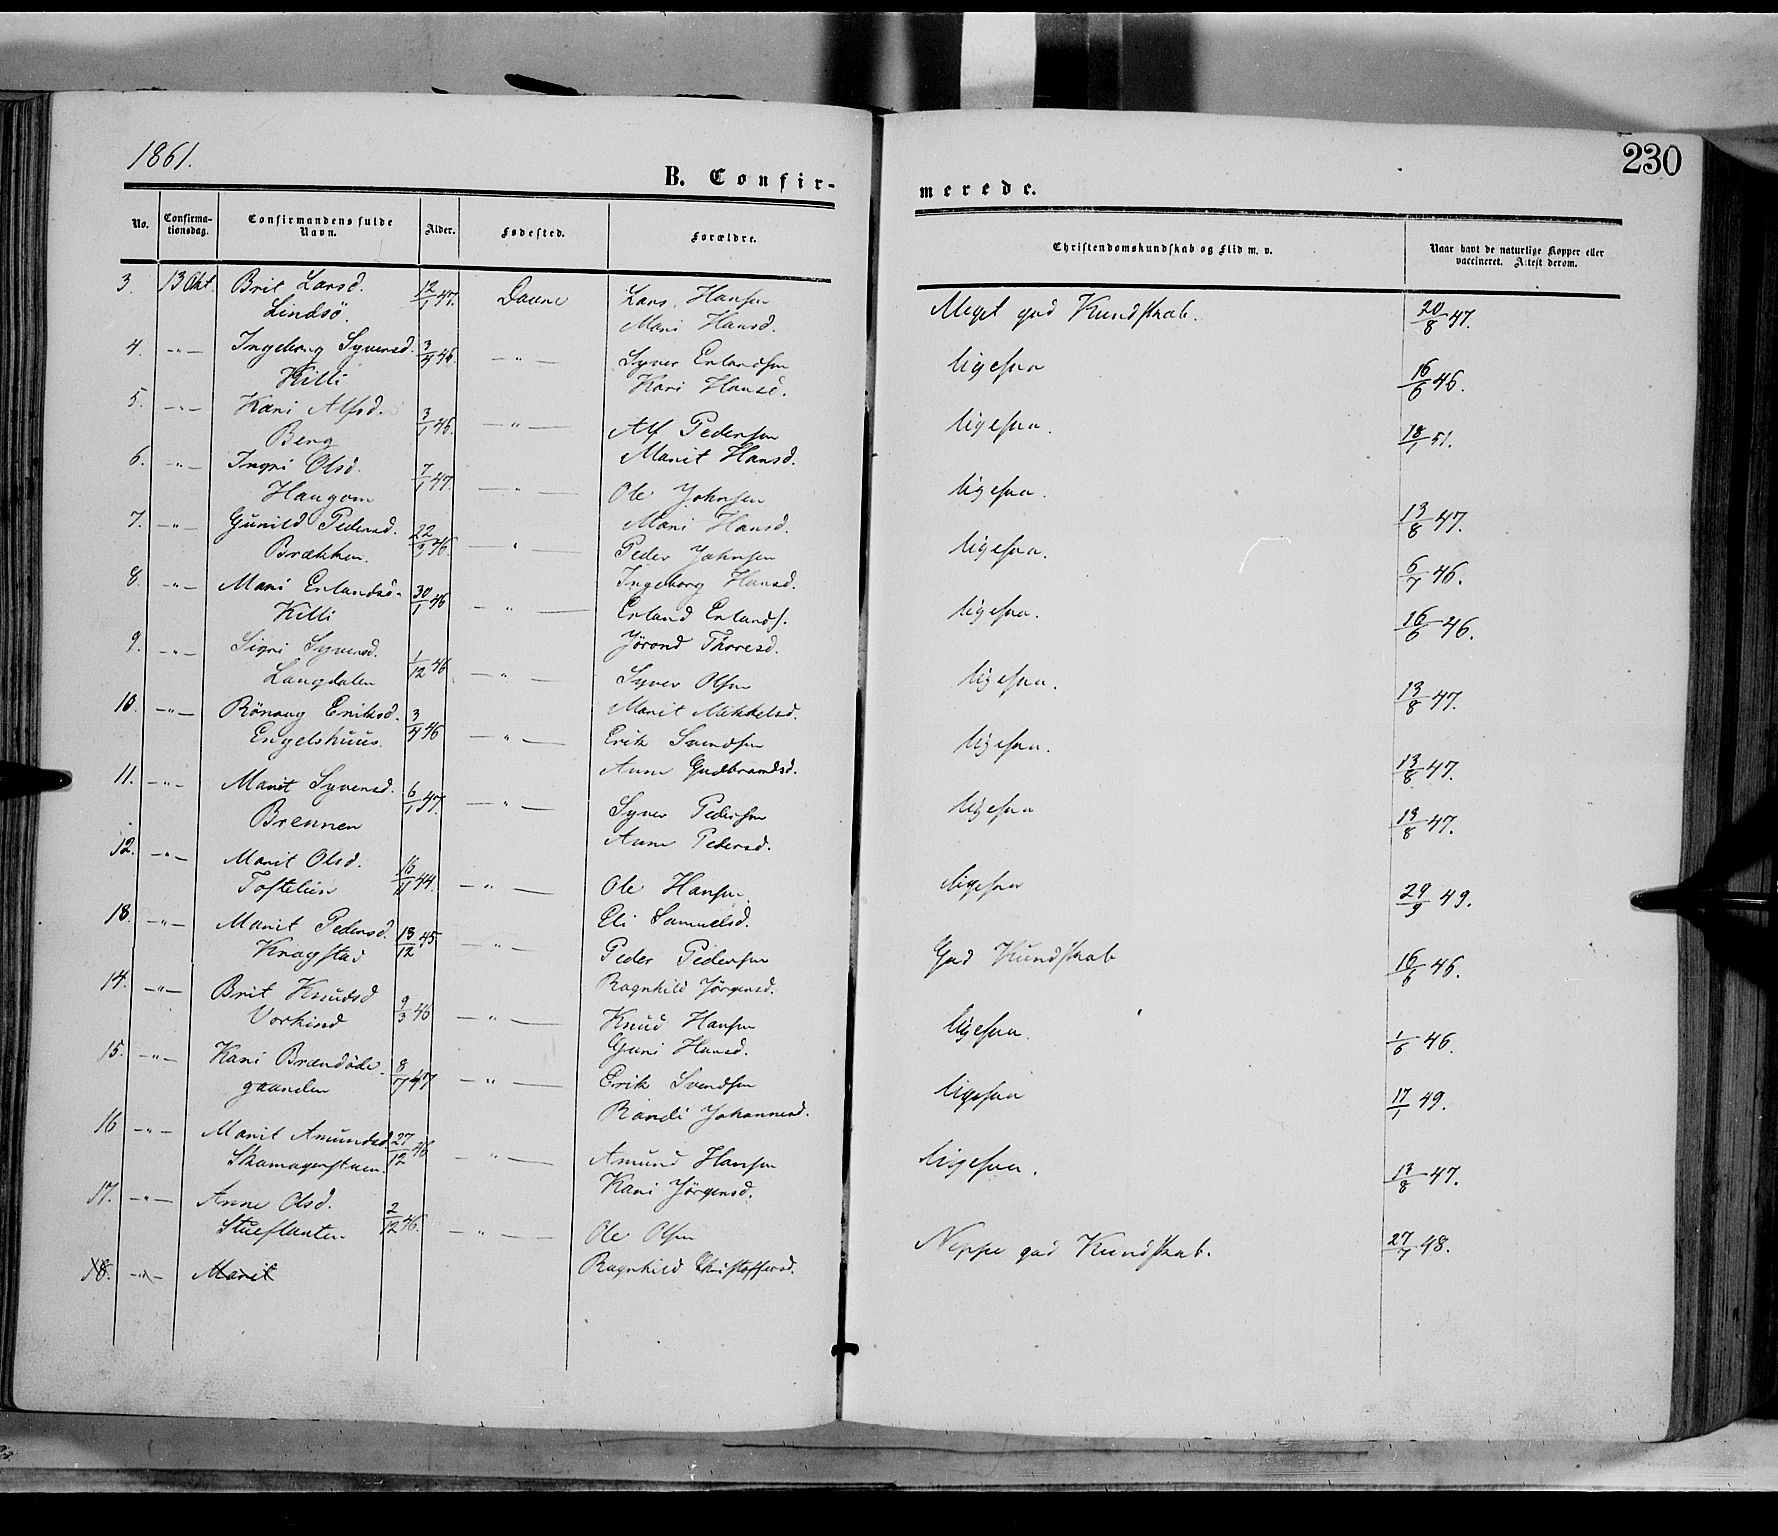 1861.
230
B. Confir-
merede.
No.
Confirma-
tionsdag.
Confirmandens fulde
Navn.
Alder.
Fødested.
Forældre.
Christendomskundskab og Flid m. v.
Naar havt de naturlige Kopper eller
vaccineret. Attest derom.
3. 13 Okt. Brit Larsd. 12/1 47. Daane Lars Hansen Meget god Kundskab. 20/8 47.
Lindsö. Mari Hansd.
4. -"- Ingeborg Syversd. 3/4 46. -"- Syver Erlandsen ligesaa 16/6 46.
Killi Kari Hansd.
5. -"- Kari Alfsd. 3/1 46. -"- Alf Pedersen ligesaa. 18/1 51.
Berg Marit Hansd.
6. -"- Ingri Olsd. 7/1 47. -"- Ole Johnsen ligesaa. 13/8 47.
Haugom Mari Hansd.
7. -"- Gunild Pedersd. 22/3 46. -"- Peder Johnsen ligesaa. 6/7 46.
Brækken. Ingeborg Hansd.
8. -"- Mari Erlandsd. 30/1 46 -"- Erland Erlands. ligesaa. 16/6 46.
Killi Jörond Thoresd.
9. -"- Sigri Syversd. 1/12 46 -"- Syver Olsen ligesaa. 13/8 47.
Langdalen Marit Mikkelsd.
10. -"- Rönaug Eriksd. 3/4 46 -"- Erik Svendsen ligesaa. 13/8 47.
Engelshuus. Anne Gudbrandsd.
11. -"- Marit Syversd. 6/1 47. -"- Syver Pedersen ligesaa 13/8 47.
Brennen Anne Pedersd.
12. -"- Marit Olsd. 16/11 44. -"- Ole Hansen ligesaa 29/9 49.
Toftelien Eli Samuelsd.
13. -"- Marit Pedersd. 13/12 45 -"- Peder Pedersen God Kundskab 16/6 46.
Kragstad Ragnhild Jörgensd.
14. -"- Brit Knudsd 9/3 46 -"- Knud Hansen ligesaa. 1/6 46.
Vorkind Guri Hansd.
15. -"- Kari Brændöde- 8/7 47 -"- Erik Svendsen ligesaa 17/1 49.
gaarden Randi Johannesd.
16 -"- Marit Amundsd. 27/12 46 -"- Amund Hansen ligesaa. 13/8 47.
Skamagerstuen. Kari Jörgensd.
17. -"- Anne Olsd. 2/12 46. -"- Ole Olsen Neppe god Kundskab. 27/7 48.
Stueflauten Ragnhild Christoffersd.
18. -"- Marit